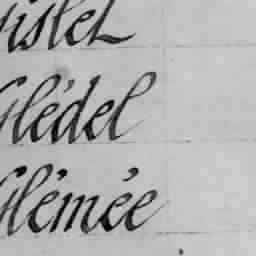 Gislet
Glédel
Glémée